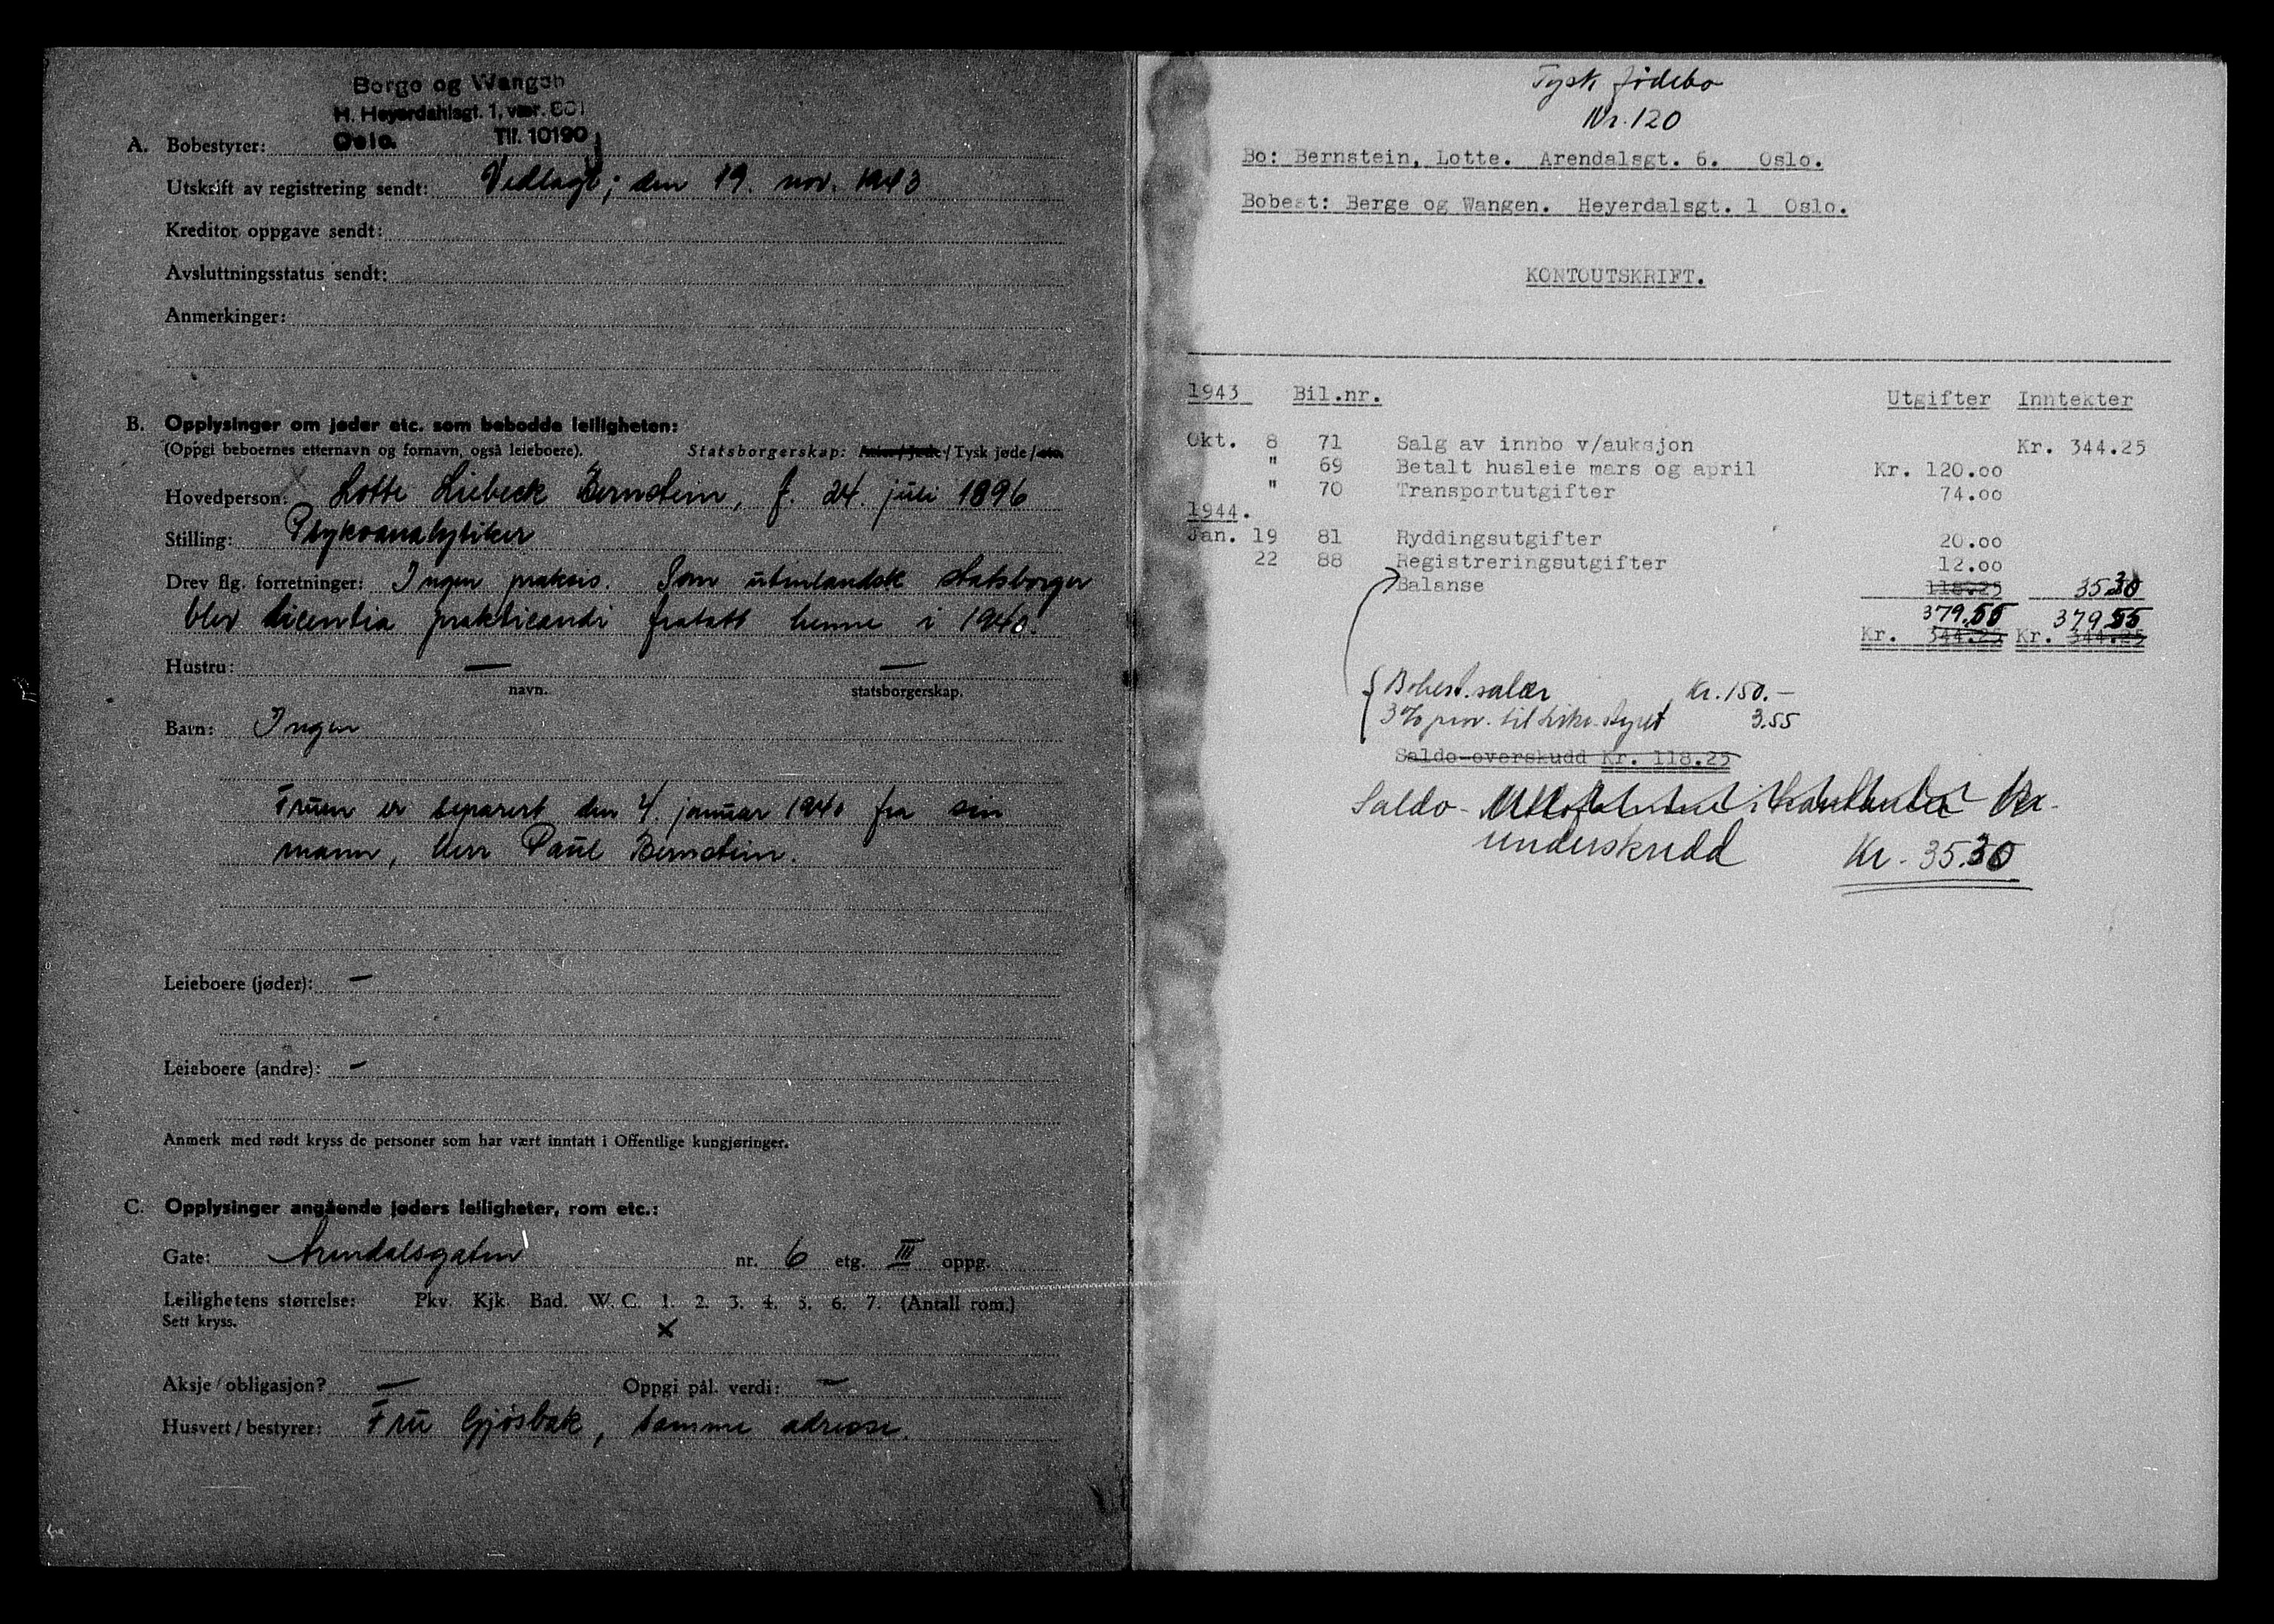 Berge og Wangen
H. Heyerdahlsgt. 1, vær. 601
A. Bobestyrer: Oslo. Tlf. 10190
Utskrift av registrering sendt: Vedlagt; den 19. nov. 1943
Kreditor oppgave sendt:
Avsluttningsstatus sendt:
Anmerkinger:
B. Opplysinger om jøder etc. som bebodde leiligheten:
(Oppgi beboernes etternavn og fornavn, også leieboere). Statsborgerskap: / Tysk jøde / etc.
Hovedperson: Lotte Liebeck Bernstein, f. 24. juli 1896
Stilling: Psykoanalytiker
Drev flg. forretninger: Ingen praksis. Som utenlandsk statsborger
blev licentia practicandi fratatt henne i 1940.
Hustru: — —
navn. statsborgerskap.
Barn: Ingen
Fruen er separert den 4. januar 1940 fra sin
mann, Herr Paul Bernstein.
Leieboere (jøder): —
Leieboere (andre): —
Anmerk med rødt kryss de personer som har vært inntatt i Offentlige kungjøringer.
C. Opplysinger angående jøders leiligheter, rom etc.:
Gate: Arendalsgaten nr. 6 etg. III oppg.
Leilighetens størrelse: Pkv. Kjk. Bad. W.C. 1. 2. 3. 4. 5. 6. 7. (Antall rom.)
Sett kryss. x
Aksje / obligasjon? — Oppgi pål. verdi: —
Husvert / bestyrer: Fru Gjøsbak, samme adresse.
Tysk jødebo
Nr. 120
Bo: Bernstein, Lotte. Arendalsgt. 6. Oslo.
Bobest: Berge og Wangen. Heyerdalsgt. 1 Oslo.
KONTOUTSKRIFT.
1943 Bil.nr. Utgifter Inntekter
Okt. 8 71 Salg av innbo v/auksjon Kr. 344.25
" 69 Betalt husleie mars og april Kr. 120.00
" 70 Transportutgifter 74.00
1944.
Jan. 19 81 Ryddingsutgifter 20.00
22 88 Registreringsutgifter 12.00
Balanse 118.25 35.30
379.55 379.55
Kr. 344.25 Kr. 344.25
Bobest. salær Kr. 150.—
3% prov. til 3.55
Saldo-overskudd Kr. 118.25
Saldo -
underskudd Kr. 35.30